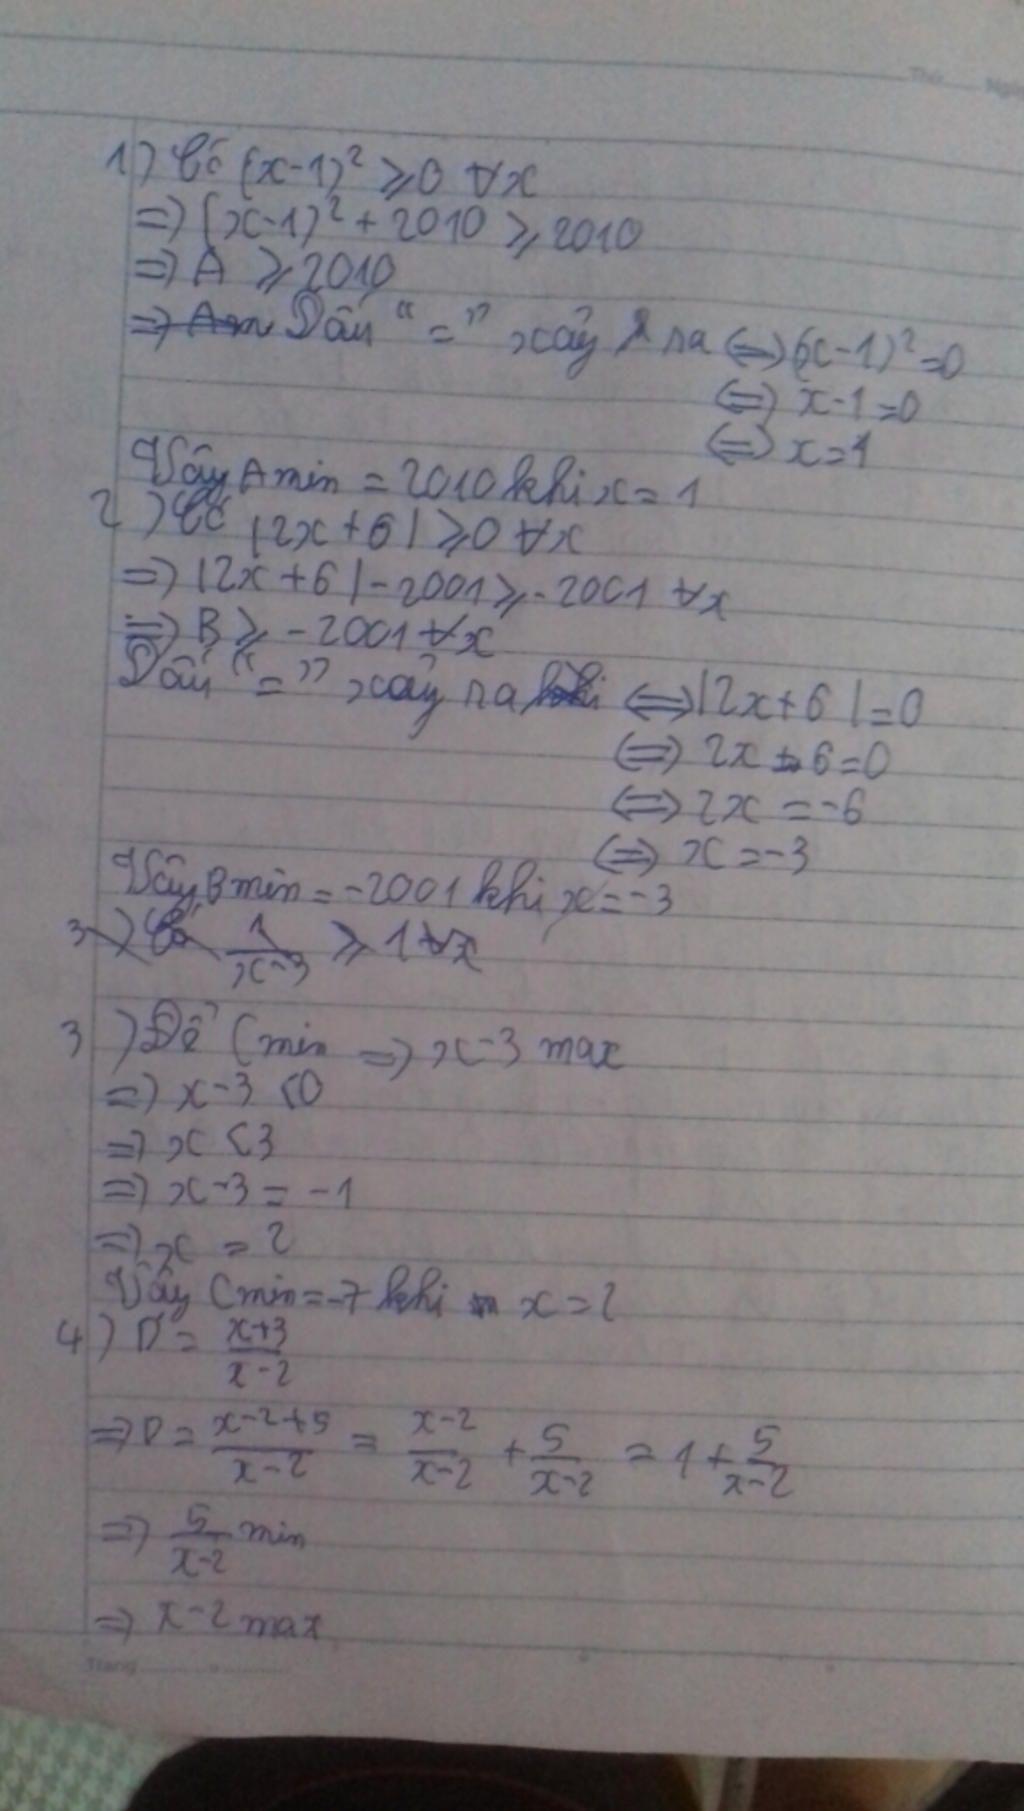 Thứ Ngày
1) Có (x-1)² ≥ 0 ∀x
=> (x-1)² + 2010 ≥ 2010
=> A ≥ 2010
=> Dấu "=" xảy ra <=> (x-1)² = 0
<=> x-1 = 0
<=> x = 1
Vậy A min = 2010 khi x = 1
2) Có |2x+6| ≥ 0 ∀x
=> |2x+6| - 2001 ≥ -2001 ∀x
=> B ≥ -2001 ∀x
Dấu "=" xảy ra <=> |2x+6| = 0
<=> 2x + 6 = 0
<=> 2x = -6
<=> x = -3
Vậy B min = -2001 khi x = -3
3) Có 1/(x-3) ≥ 1 ∀x
3) Để C min => x-3 max
=> x-3 < 0
=> x < 3
=> x-3 = -1
=> x = 2
Vậy C min = -7 khi x = 2
4) D = (x+3)/(x-2)
=> D = (x-2+5)/(x-2) = (x-2)/(x-2) + 5/(x-2) = 1 + 5/(x-2)
=> 5/(x-2) min
=> x-2 max
Trang